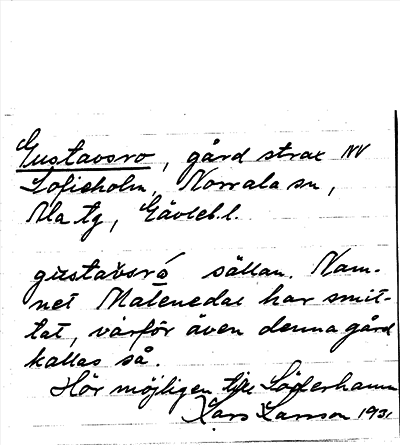 Gustavsro, gård strax NV
Sofieholm, Norrala sn,
Ala tg, Gävleb.l.
gustavsró sällan. Nam-
net Matenedal har smit-
tat, varför även denna gård
kallas så.
Hör möjligen till Söderhamn
Lars Larsson 1931